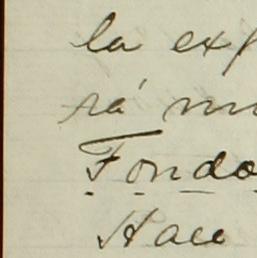 la exp
rá mu
Fondo
Hace